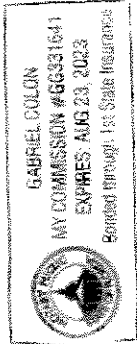 GABRIEL COLON
MY COMMISSION #GG331641
EXPIRES AUG 23, 2023
Bonded through 1st State Insurance